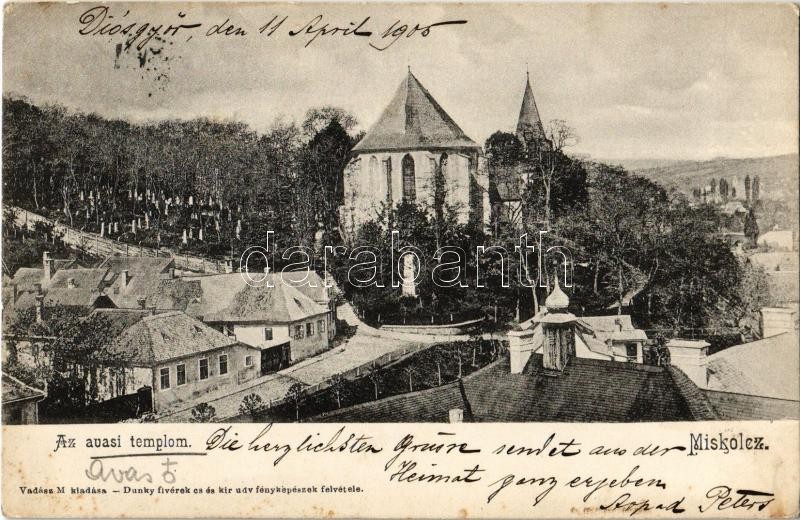 Diósgyőr, den 11 April 1905
darabanth
Az avasi templom.
Miskolcz.
Die herzlichsten Grüsse sendet aus der
Heimat ganz ergeben
Arpad Peters
Avas
Vadász M kiadása — Dunky fivérek cs és kir udv fényképészek felvétele.